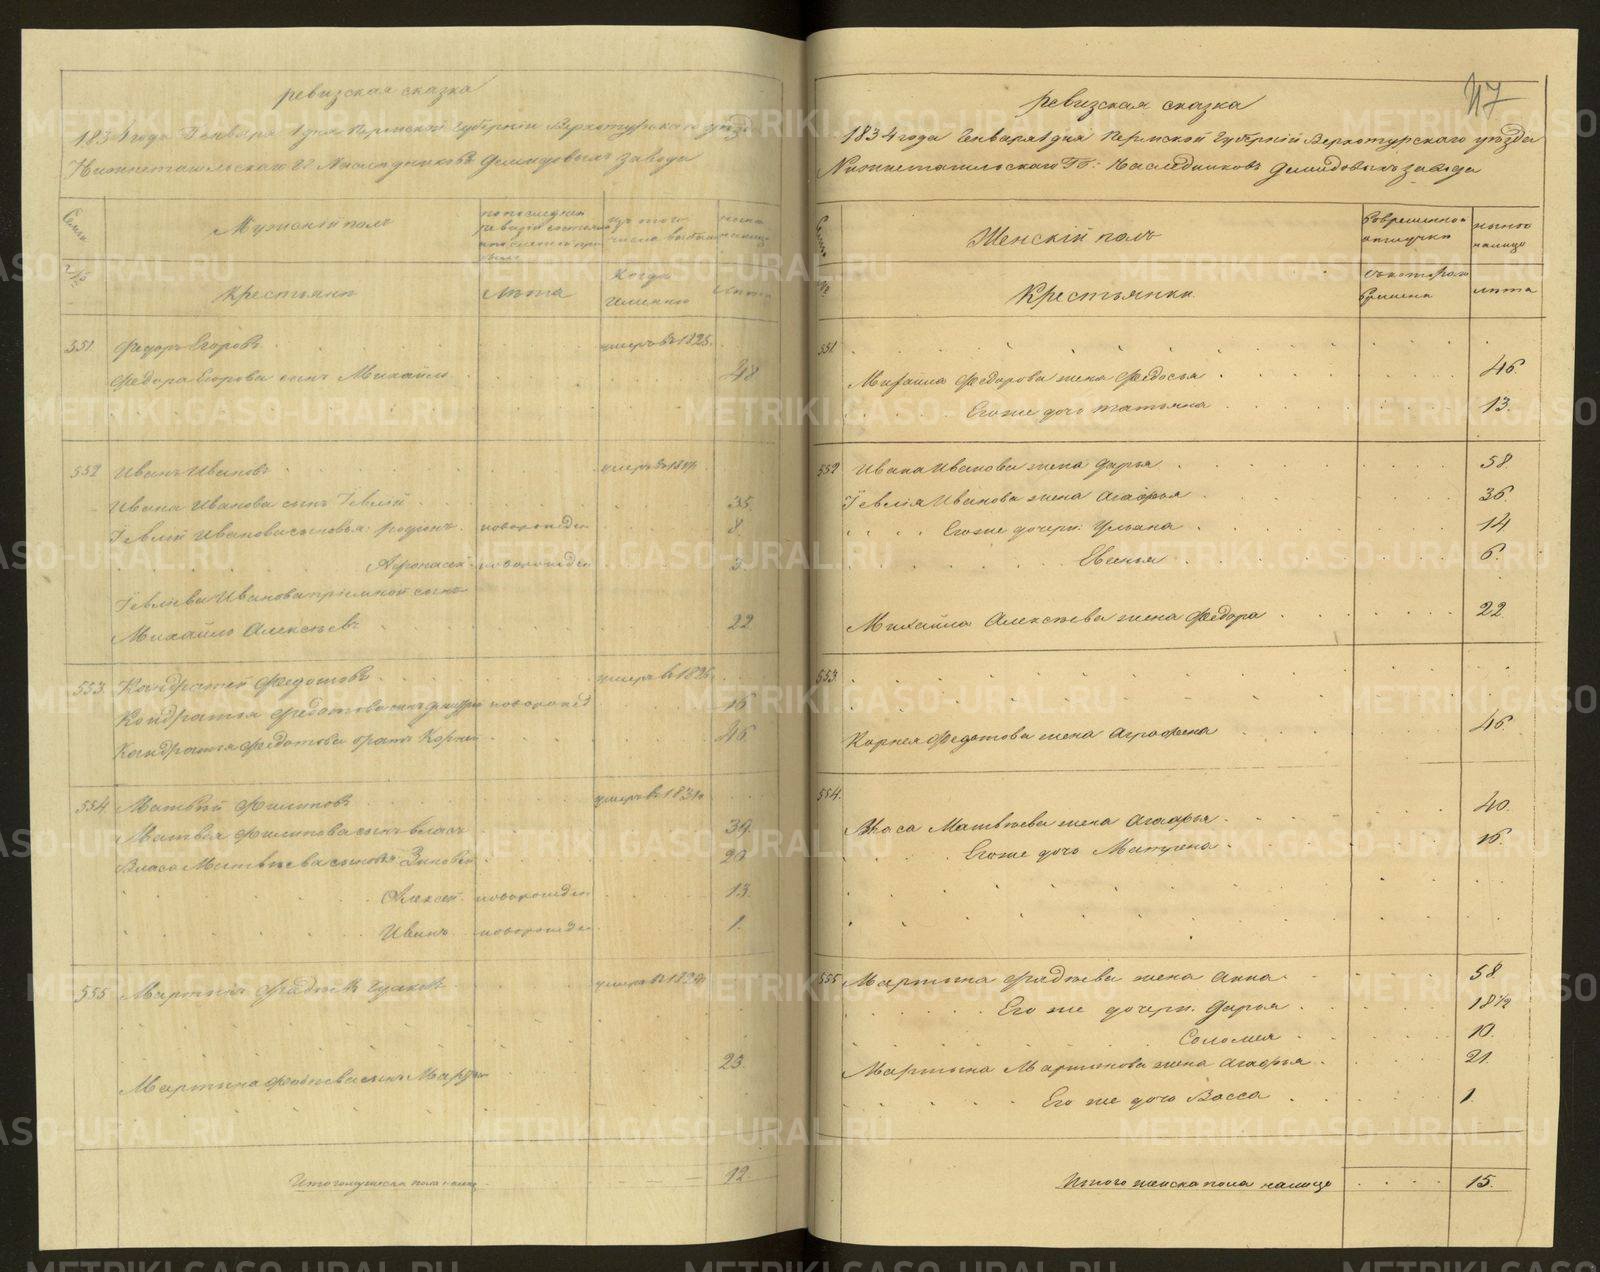 ревизская сказка
1834 года Генваря 1 дня Пермской Губернiи Верхотурскаго уезда
Нижнетагильскаго Гг Наследниковъ Демидовыхъ завода
Семьи
Мужескiй полъ
по последней ревизiи состояло
изъ того числа выбыло
ныне налицо
№
Крестьяне
лѣта
Когда именно
лѣта
551. Федоръ Егоровъ умеръ въ 1825.
Федора Егорова сынъ Михайло 48
552 Иванъ Ивановъ умеръ въ
Ивана Иванова сынъ Iевлiй 35.
Iевлiя Иванова сыновья: Родiонъ новорожден 8.
Афонасей новорожден 3.
Iевлiева Иванова прiемной сынъ
Михайло Алексѣевъ 22
553. Кондратей Федотовъ умеръ въ
Кондратья Федотова сынъ Дмитрiй новорожд 16
Кондратья Федотова братъ Корней 46.
554. Матвей Филиповъ умеръ въ
Матвея Филипова сынъ Власъ 39.
Власа Матвѣева сыновья Зиновей 20
Алексей новорожден 13.
Иванъ новорожден 1.
555 Мартынъ Фадѣевъ умеръ въ
Мартына Фадеева сынъ Мартын 23.
Итого мужеска пола налицо 12
47
ревизская сказка
1834 года Генваря 1 дня Пермской Губернiй Верхотурскаго уезда
Нижнетагильскаго Гг: Наследниковъ Демидовыхъ завода
Семьи
Женскiй полъ
Во временной отлучке
ныне налицо
№
Крестьянки
Съ котораго времени
лѣта
551
Михаила Федорова жена Федосья 46.
Его же дочь Татьяна 13.
552 Ивана Иванова жена Дарья 58.
Iевлiя Иванова жена Агафья 36.
Его же дочери: Ульяна 14
Евгенья 6.
Михайла Алексѣева жена Федора 22
553.
Корнея Федотова жена Аграфена 46.
554.
Власа Матвѣева жена Агафья 40.
Его же дочь Матрена 16.
555 Мартына Фадѣева жена Анна 58
Его же дочери: Дарья 18 1/2
Соломея 10.
Мартына Мартынова жена Агафья 21.
Его же дочь Васса 1.
Итого женска пола налицо 15.
METRIKI.GASO-URAL.RU